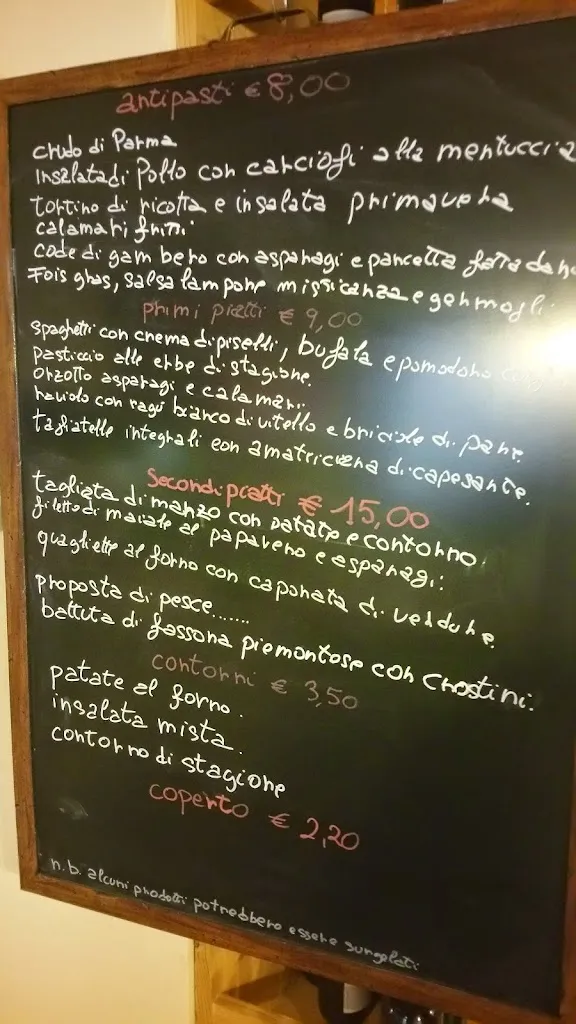 antipasti € 8,00
crudo di Parma
insalata di Pollo con carciofi alla mentuccia
tortino di ricotta e insalata primavera
calamari fritti
code di gambero con asparagi e pancetta
Fois gras, salsa lampone misticanza e germogli
primi piatti € 9,00
spaghetti con crema di piselli, bufala e pomodoro
pasticcio alle erbe di stagione.
orzotto asparagi e calamari
raviolo con ragù bianco di vitello e briciole di pane
tagliatelle integrali con amatriciana di capesante.
Secondi piatti € 15,00
tagliata di manzo con patate e contorno.
filetto di maiale al papavero e asparagi.
quagliette al forno con caponata di verdure
proposta di pesce.......
battuta di fassona piemontese con crostini.
contorni € 3,50
patate al forno.
insalata mista.
contorno di stagione
coperto € 2,20
n.b. alcuni prodotti potrebbero essere surgelati